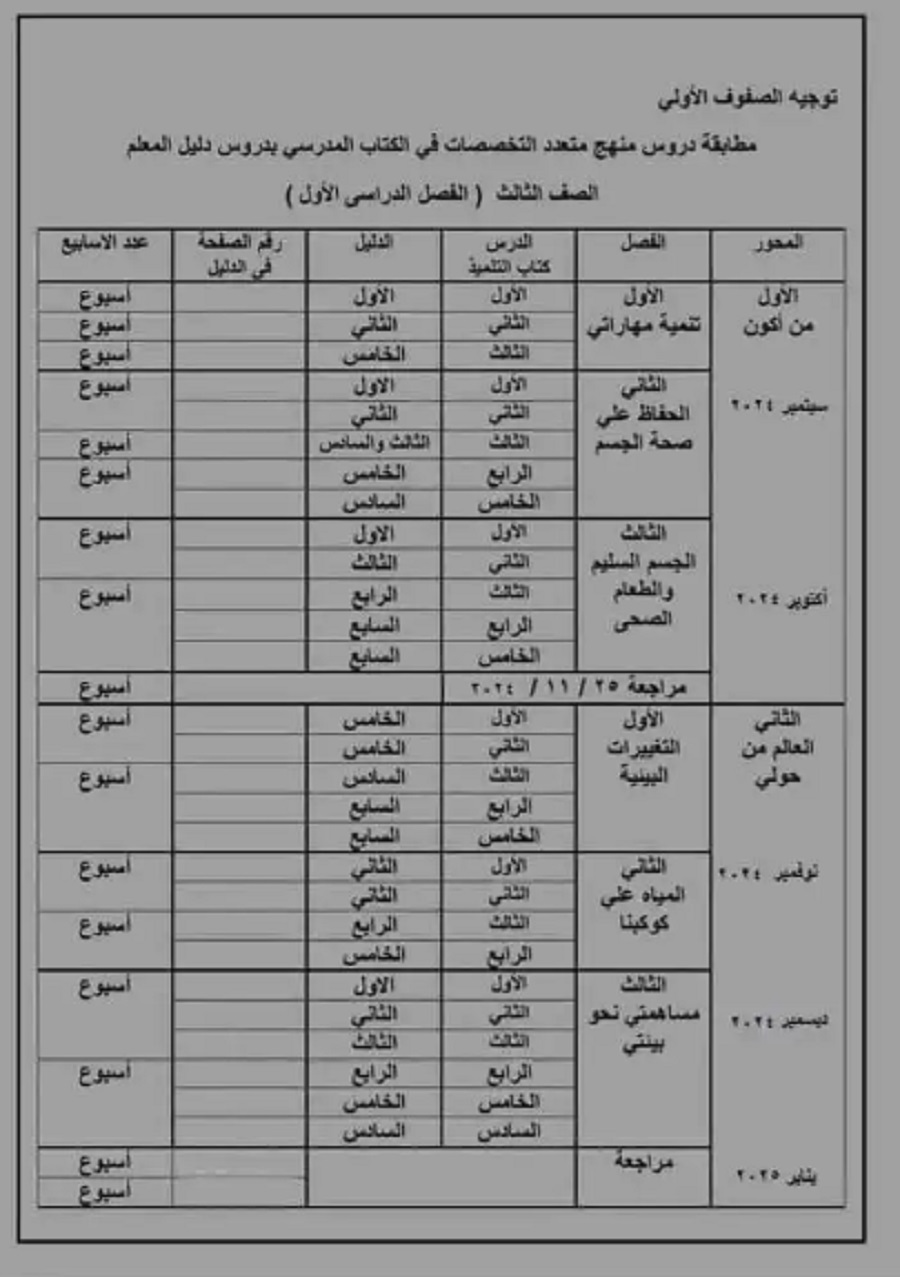 توجيه الصفوف الأولي
مطابقة دروس منهج متعدد التخصصات في الكتاب المدرسي بدروس دليل المعلم
الصف الثالث ( الفصل الدراسى الأول )
المحور الفصل الدرس كتاب التلميذ الدليل رقم الصفحة في الدليل عدد الاسابيع
الأول من أكون سبتمبر ٢٠٢٤ أكتوبر ٢٠٢٤
الأول تنمية مهاراتي
الأول الأول أسبوع
الثاني الثاني أسبوع
الثالث الخامس أسبوع
الثاني الحفاظ علي صحة الجسم
الأول الأول أسبوع
الثاني الثاني
الثالث الثالث والسادس أسبوع
الرابع الخامس أسبوع
الخامس السادس
الثالث الجسم السليم والطعام الصحى
الأول الاول أسبوع
الثاني الثالث
الثالث الرابع أسبوع
الرابع السابع
الخامس السابع
مراجعة ٢٥ / ١١ / ٢٠٢٤ أسبوع
الثاني العالم من حولي نوفمبر ٢٠٢٤ ديسمبر ٢٠٢٤ يناير ٢٠٢٥
الأول التغييرات البيئية
الأول الخامس أسبوع
الثاني الخامس
الثالث السادس أسبوع
الرابع السابع
الخامس السابع
الثاني المياه علي كوكبنا
الأول الثاني أسبوع
الثاني الثاني
الثالث الرابع أسبوع
الرابع الخامس
الثالث مساهمتي نحو بيئتي
الأول الاول أسبوع
الثاني الثاني
الثالث الثالث
الرابع الرابع أسبوع
الخامس الخامس
السادس السادس
مراجعة أسبوع
أسبوع